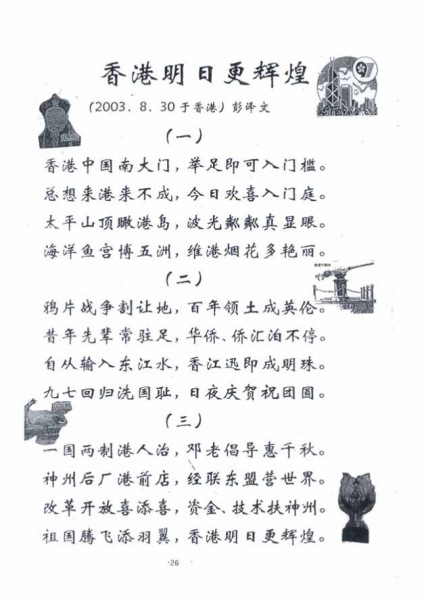 香港明日更辉煌
(2003、8、30于香港) 彭泽文
(一)
香港中国南大门，举足即可入门槛。
总想来港来不成，今日欢喜入门庭。
太平山顶瞰港岛，波光粼粼真显眼。
海洋鱼宫博五洲，维港烟花多艳丽。
(二)
鸦片战争割让地，百年领土成英伦。
昔年先辈常驻足，华侨、侨汇泊不停。
自从输入东江水，香江迅即成明珠。
九七回归洗国耻，日夜庆贺祝团圆。
(三)
一国两制港人治，邓老倡导惠千秋。
神州后厂港前店，经联东盟营世界。
改革开放喜添喜，资金、技术扶神州。
祖国腾飞添羽翼，香港明日更辉煌。
·26